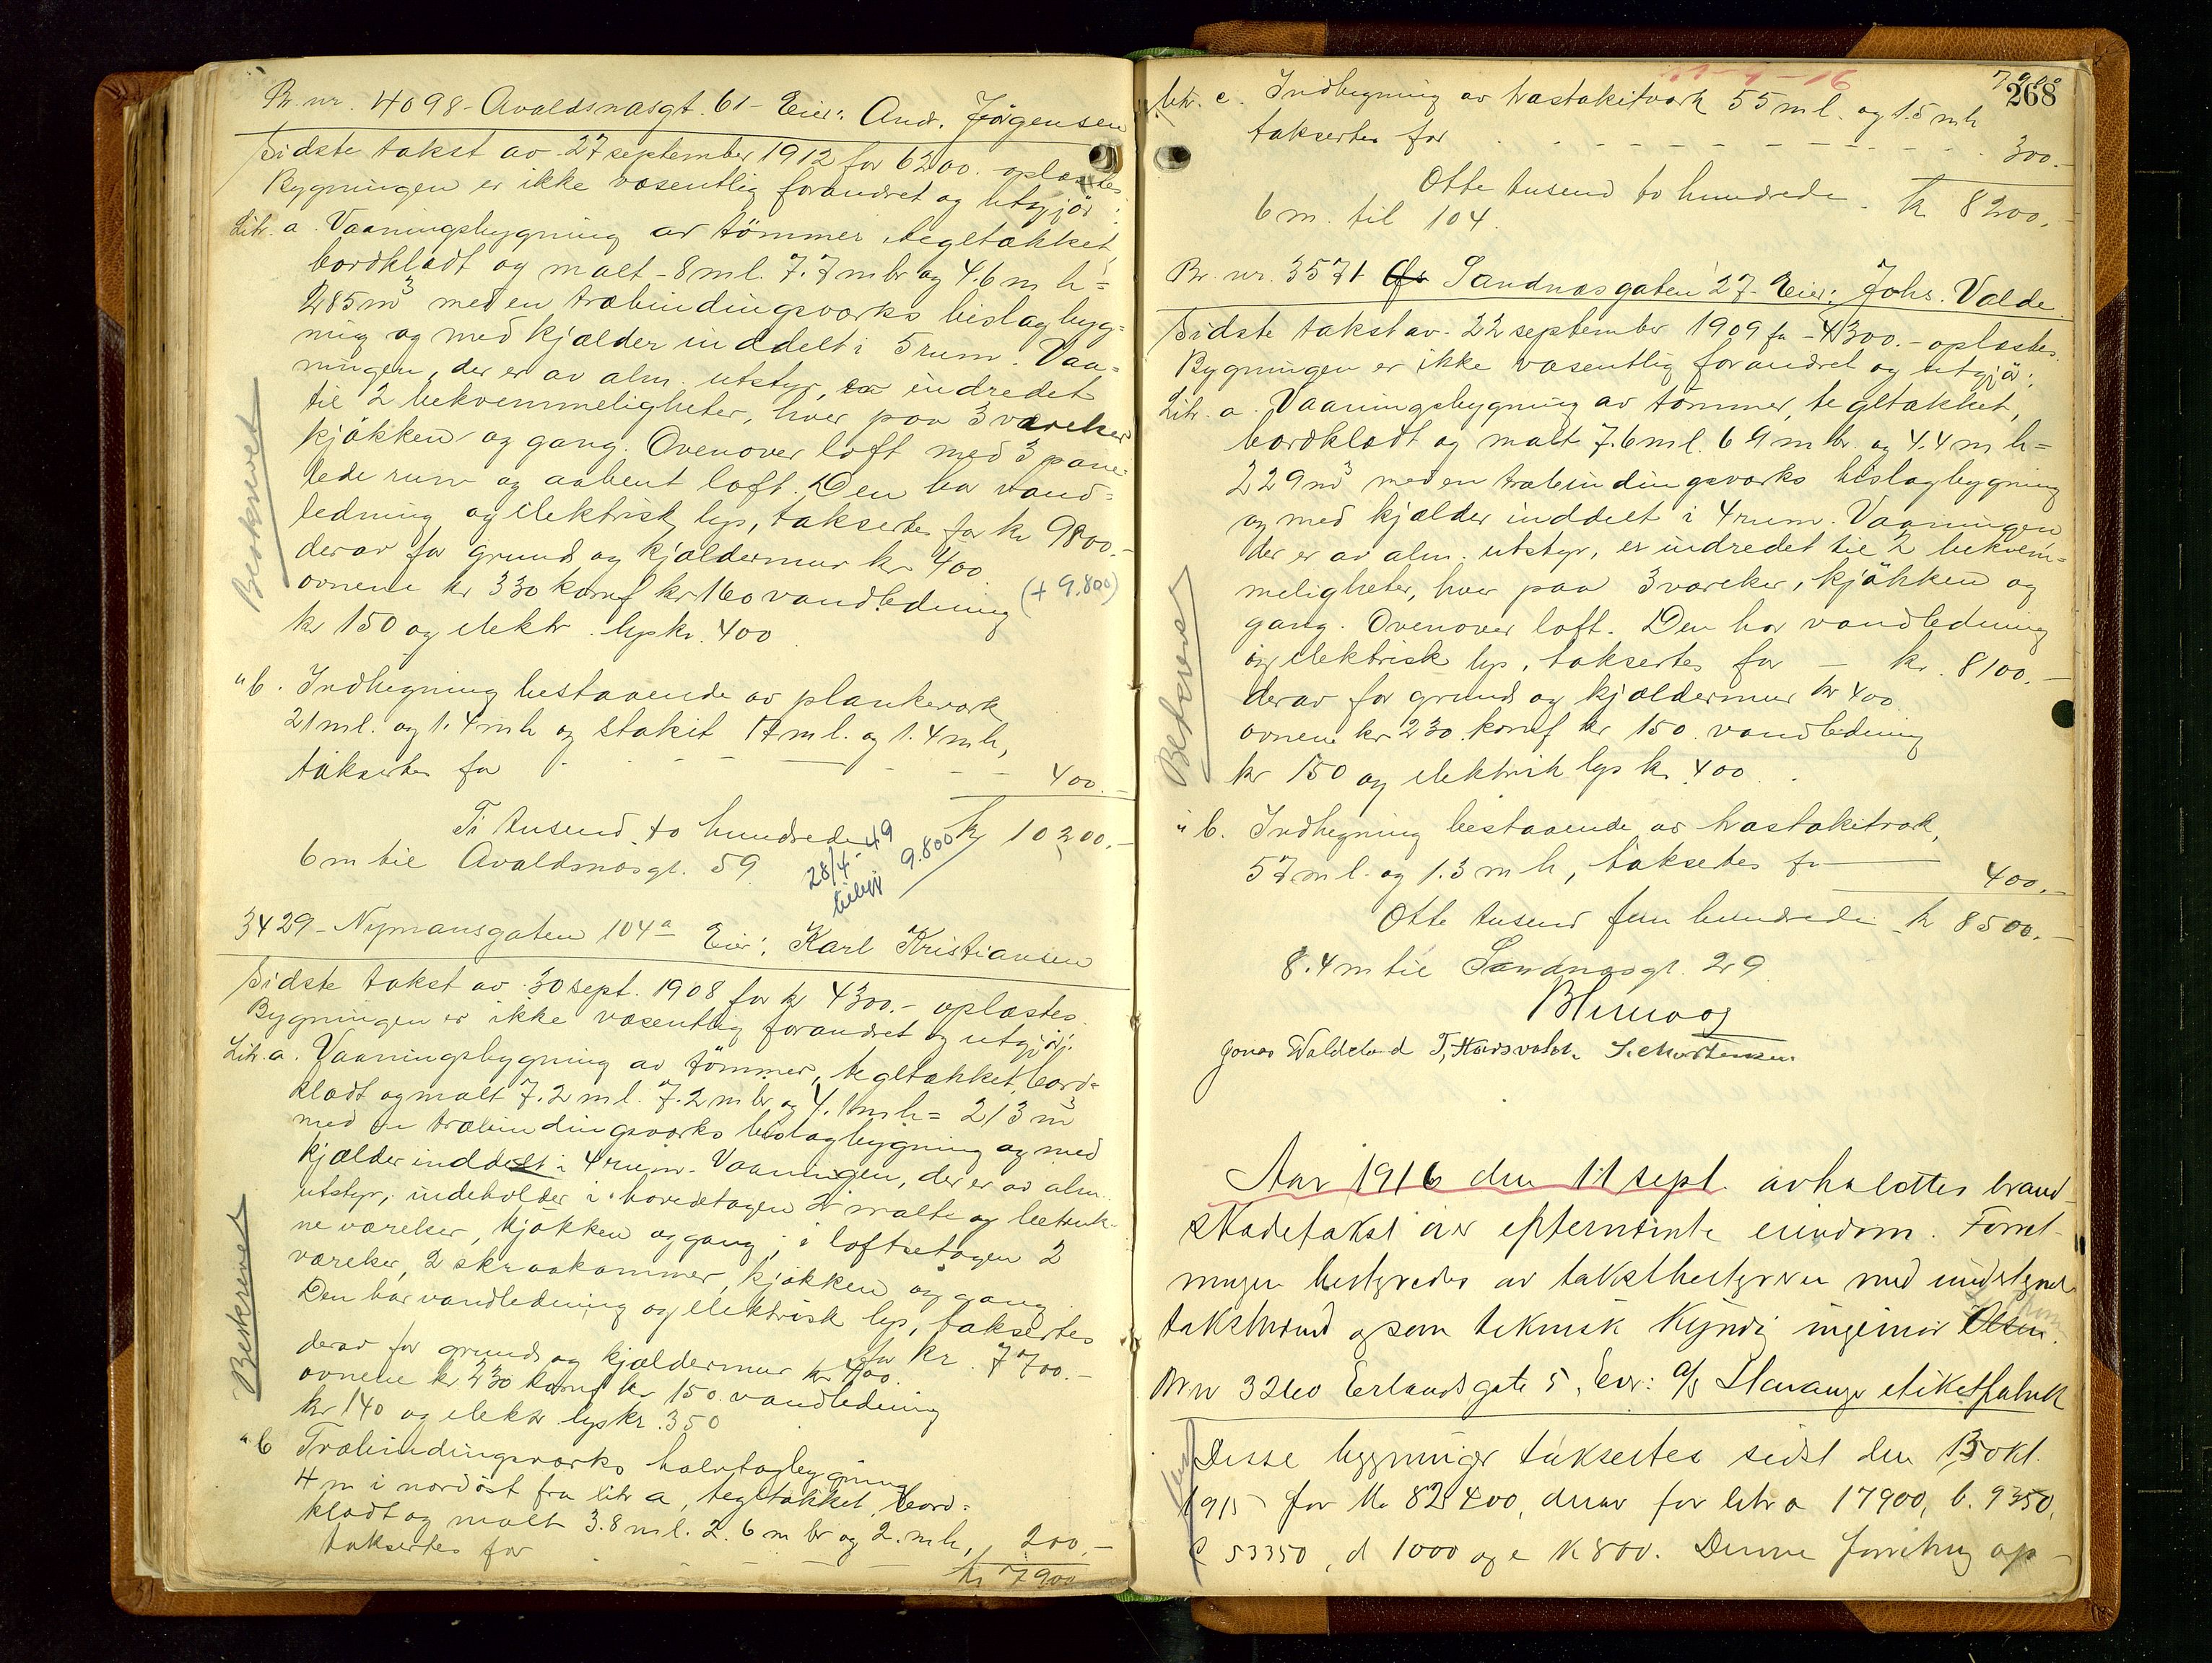 Br. nr. 4098 - Avaldsnæsgt. 61 - Eier: And. Jørgensen
Sidste takst av 27 september 1912 for 6200. oplæstes
Bygningen er ikke væsentlig forandret og utgjør:
Litr. a. Vaaningsbygning av tømmer, tegltækket,
bordklædt og malt - 8 m l. 7.7 m br og 4.6 m h =
285 m³ med en træbindingsverks bislagbyg=
ning og med kjælder inddelt i 5 rum. Vaa=
ningen, der er av alm. utstyr, er indredet
til 2 bekvemmeligheter, hver paa 3 værelser
kjøkken og gang. Ovenover loft med 3 pane=
lede rum og aabent loft. Den har vand=
ledning og elektrisk lys, takseres for kr 9800.-
derav for grund og kjældermur kr 400
ovnene kr 330 komf kr 160 vandledning (+ 9.800)
kr 150 og elektr. lys kr. 400
Beskrevet
" b. Indhegning bestaaende av plankeverk
21 m l. og 1.4 m h og stakit 17 m l. og 1.4 m h,
takseres for 400.-
Ti tusend to hundrede kr 10200.-
6 m til Avaldsnæsgt. 59
28/4-49 9.800
tilbygg
3429 - Nymansgaten 104a Eier: Karl Kristiansen
Sidste takst av 30 sept. 1908 for kr 4300.- oplæstes
Bygningen er ikke væsentlig forandret og utgjør:
Litr. a. Vaaningsbygning av tømmer, tegltækket, bord=
klædt og malt 7.2 m l. 7.2 m br og 4.1 m h = 213 m³
med en træbindingsverks bislagbygning og med
kjælder inddelt i 4 rum. Vaaningen, der er av alm.
utstyr, indeholder i hovedetagen 2 malte og betruk=
ne værelser, kjøkken og gang; i loftsetagen 2
værelser, 2 skraakammer, kjøkken og gang
Den har vandledning og elektrisk lys, takseres
for kr. 7700.-
derav for grund og kjældermur kr 400.
ovnene kr 230 komf kr 150. vandledning
kr 140 og elektr lys kr. 350
Beskrevet
" b Træbindingsverks halvtagbygning
4 m i nordøst fra litr a, tegltækket, bord=
klædt og malt 3.8 m l. 2.6 m br og 2. m h,
takseres for 200.-
kr 7900
7900
268
litr. c. Indhegning av træstakitverk 55 m l. og 1.5 m h
takseres for 300.-
Otte tusend to hundrede - kr 8200.-
6 m. til 104.
Br. nr. 3571 Sandnæsgaten 27 - Eier: Johs. Valde
Sidste takst av 22 september 1909 for - 4300.- oplæstes.
Bygningen er ikke væsentlig forandret og utgjør:
Litr. a. Vaaningsbygning av tømmer, tegltækket,
bordklædt og malt 7.6 m l. 6.9 m br. og 4.4 m h =
229 m³ med en træbindingsverks bislagbygning
og med kjælder inddelt i 4 rum. Vaaningen
der er av alm. utstyr, er indredet til 2 bekvem=
meligheter, hver paa 3 værelser, kjøkken og
gang. Ovenover loft. Den har vandledning
og elektrisk lys, takseres for - kr. 8100.-
derav for grund og kjældermur kr 400.
ovnene kr 230. komf kr 150. vandledning
kr 150 og elektrisk lys kr 400.
Beskrevet
" b. Indhegning bestaaende av træstakitverk,
57 m l. og 1.3 m h, takseres for 400.-
Otte tusend fem hundrede - kr 8500.-
8.4 m til Sandnæsgt. 29
Jonas Waldeland S. Mortensen
Aar 1916 den 11 sept. avholdtes brand-
skadetakst over efternævnte eiendom. Forret-
ningen bestyredes av takstbestyreren med undertegnede
takstmænd og som teknisk kyndig ingeniør Olsen.
Br nr 3260 Erlandsgate 5, Eier: A/S Stavanger etiketfabrik
Disse bygninger takseredes sidst den 13 okt.
1915 for kr 82400, derav for litr a 17900, b. 9350,
c 53350, d 1000 og e kr 800. Denne forretning op-